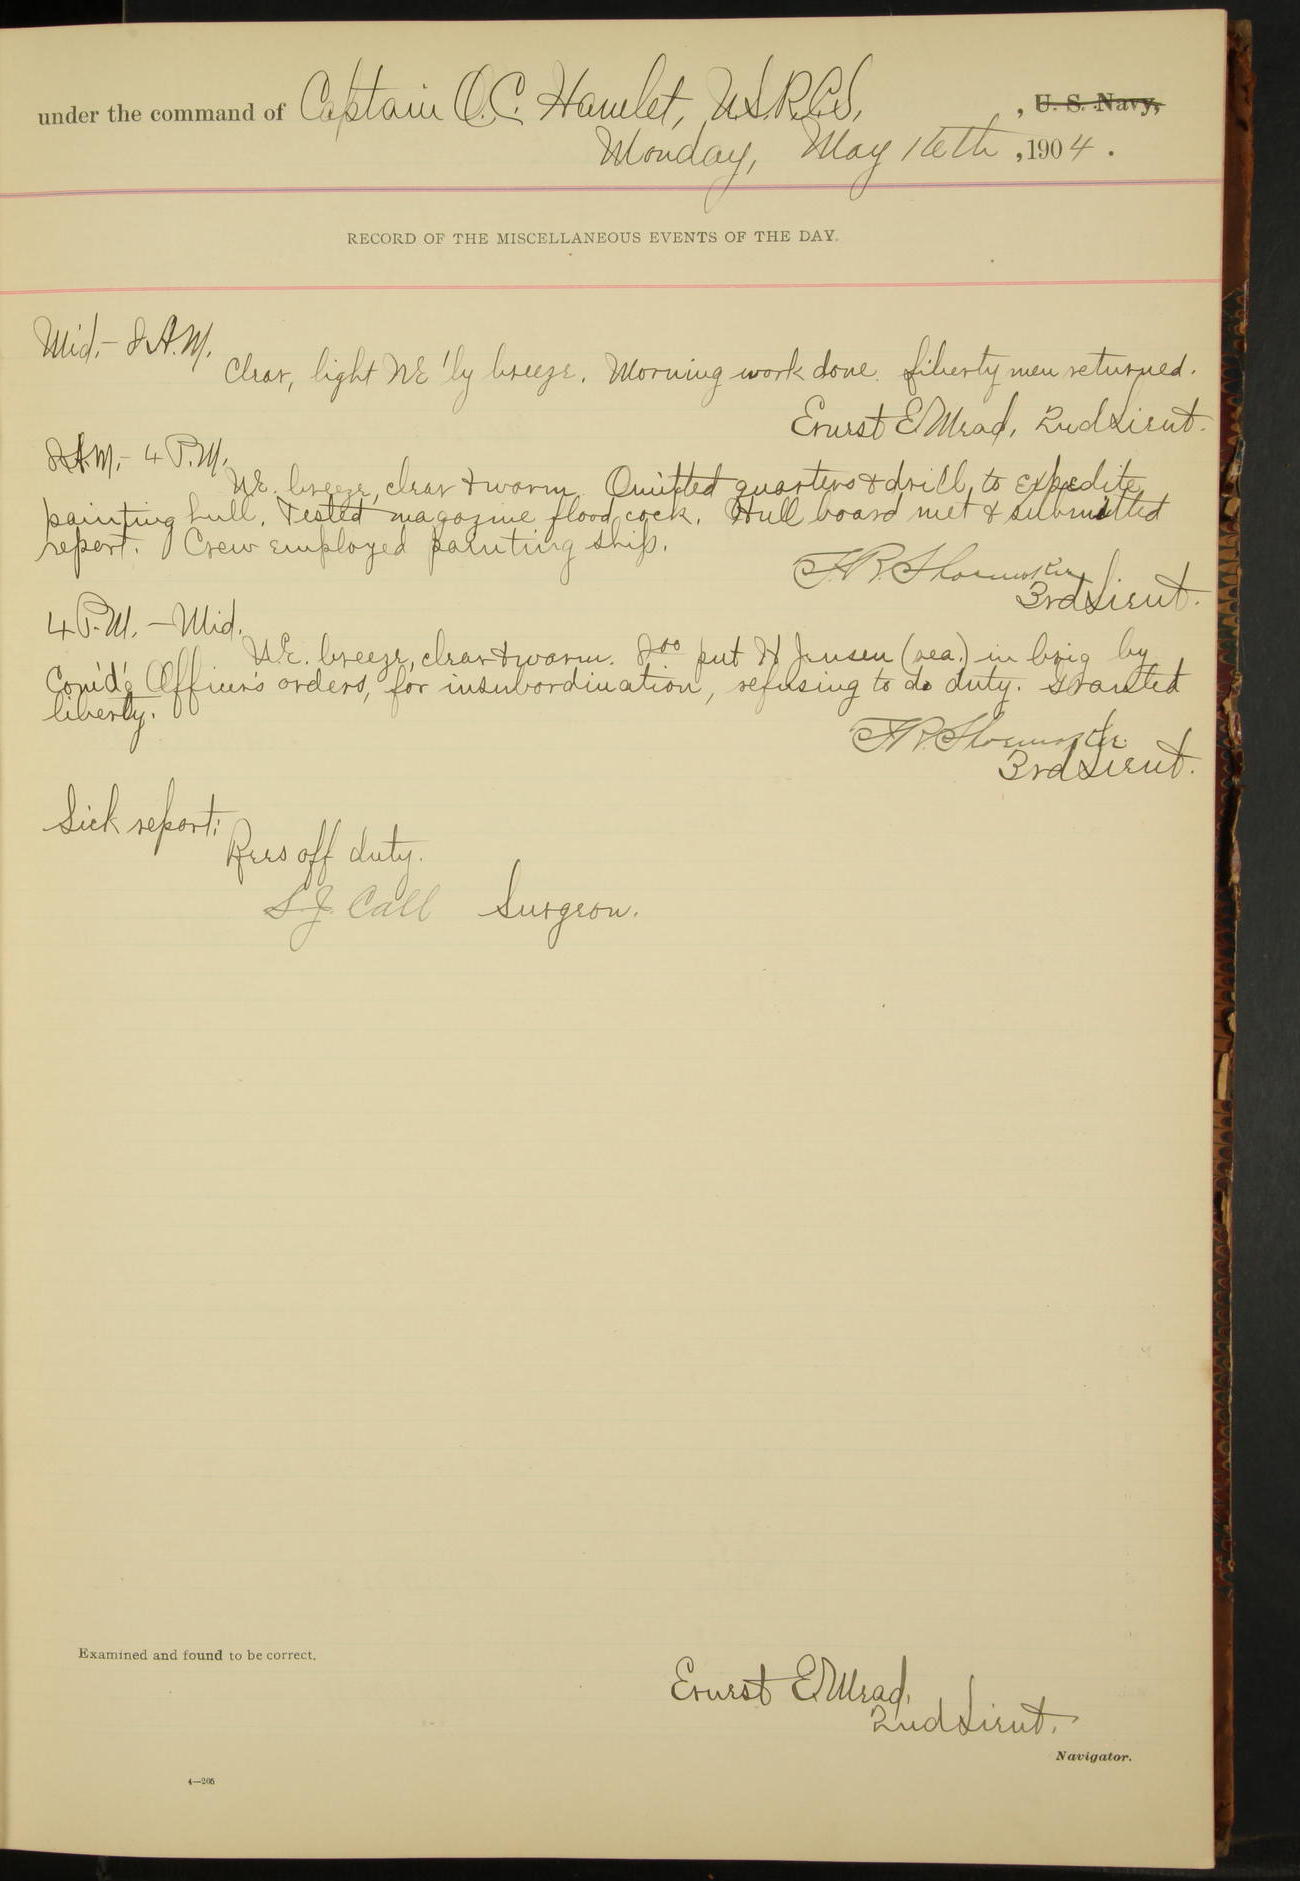 under the command of Captain O.C. Hamlet, U.S.R.C.S, , U. S. Navy,
Monday, May 16th , 1904 .
RECORD OF THE MISCELLANEOUS EVENTS OF THE DAY.
Mid.- 8 A.M.
Clear, light NE'ly breeze. Morning work done. Liberty men returned.
Ernest E. Mead, 2nd Lieut.
8 A.M.- 4 P.M.
NE. breeze, clear & warm. Omitted quarters & drill, to expedite
painting hull. Tested magazine flood cock. Hull board met & submitted
report. Crew employed painting ship.
F.R. Shoemaker
3rd Lieut.
4 P.M. - Mid.
NE. breeze, clear & warm. 8⁰⁰ put H Jensen (sea.) in brig by
Com'd'g Officer's orders, for insubordination, refusing to do duty. Granted
liberty.
F.R. Shoemaker
3rd Lieut.
Sick report:
Rees off duty.
S.J. Call Surgeon.
Examined and found to be correct.
Ernest E. Mead,
2nd Lieut.
Navigator.
4—205